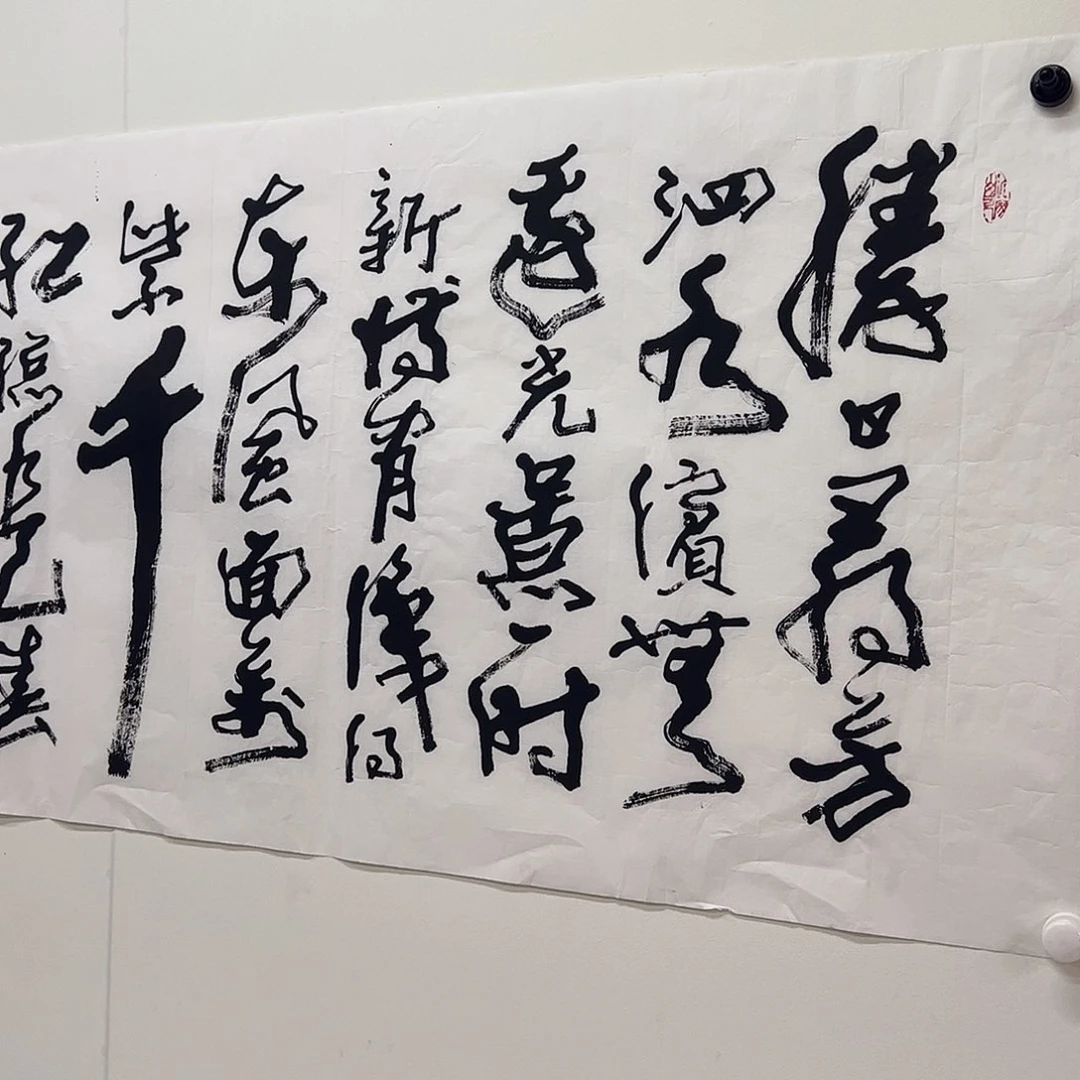 勝日尋芳
泗水濱無
邊光景一时
新等閒識得
東風面萬
紫千
紅總是春